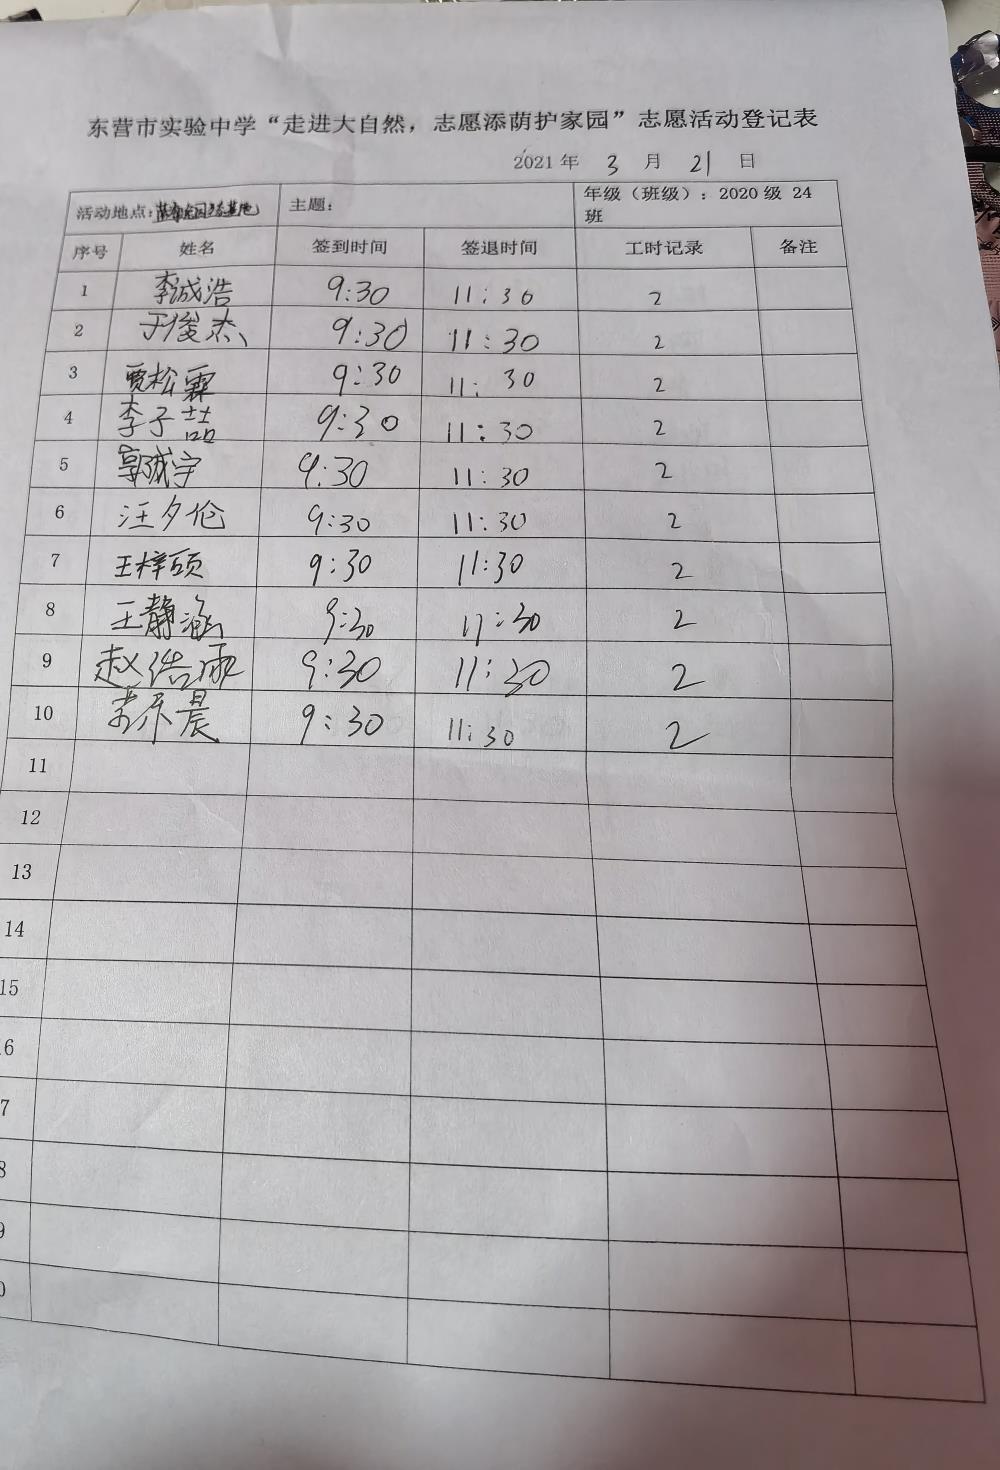 东营市实验中学“走进大自然，志愿添荫护家园”志愿活动登记表
2021 年 3 月 21 日
活动地点： 主题： 年级（班级）：2020 级 24 班
序号 姓名 签到时间 签退时间 工时记录 备注
1 李诚浩 9:30 11:30 2
2 于俊杰 9:30 11:30 2
3 贾松霖 9:30 11:30 2
4 李子喆 9:30 11:30 2
5 郭诚宇 9:30 11:30 2
6 汪夕伦 9:30 11:30 2
7 王梓硕 9:30 11:30 2
8 王静涵 9:30 11:30 2
9 赵浩 9:30 11:30 2
10 晨 9:30 11:30 2
11
12
13
14
15
6
7
8
9
0